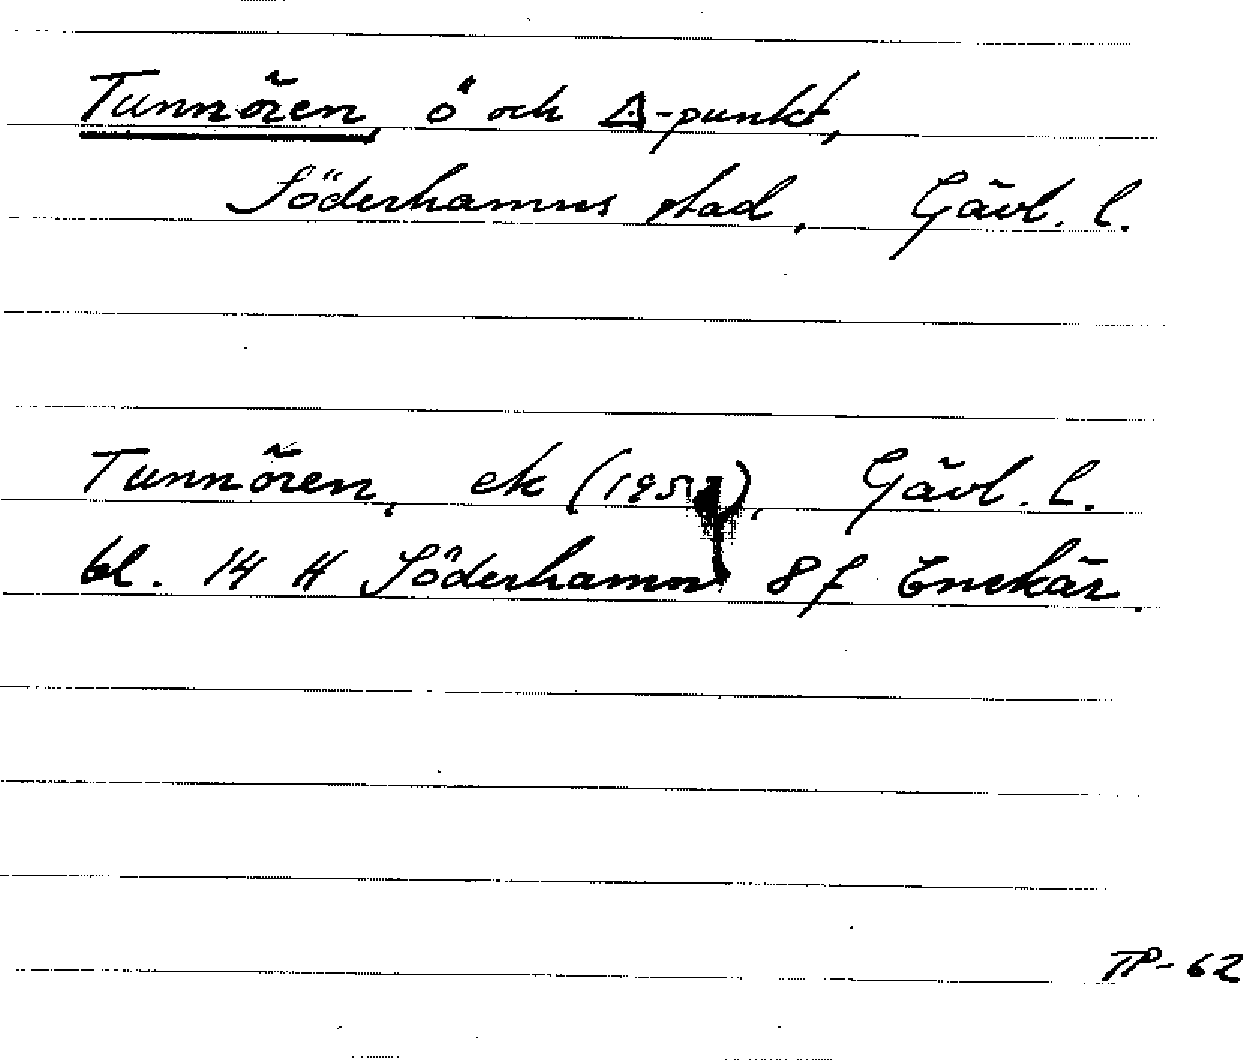 Tunnören, ö och △-punkt,
Söderhamns stad, Gävl. l.
Tunnören, ek Gävl. l.
bl. 14 H Söderhamn 8 f Enskär.
TP-62